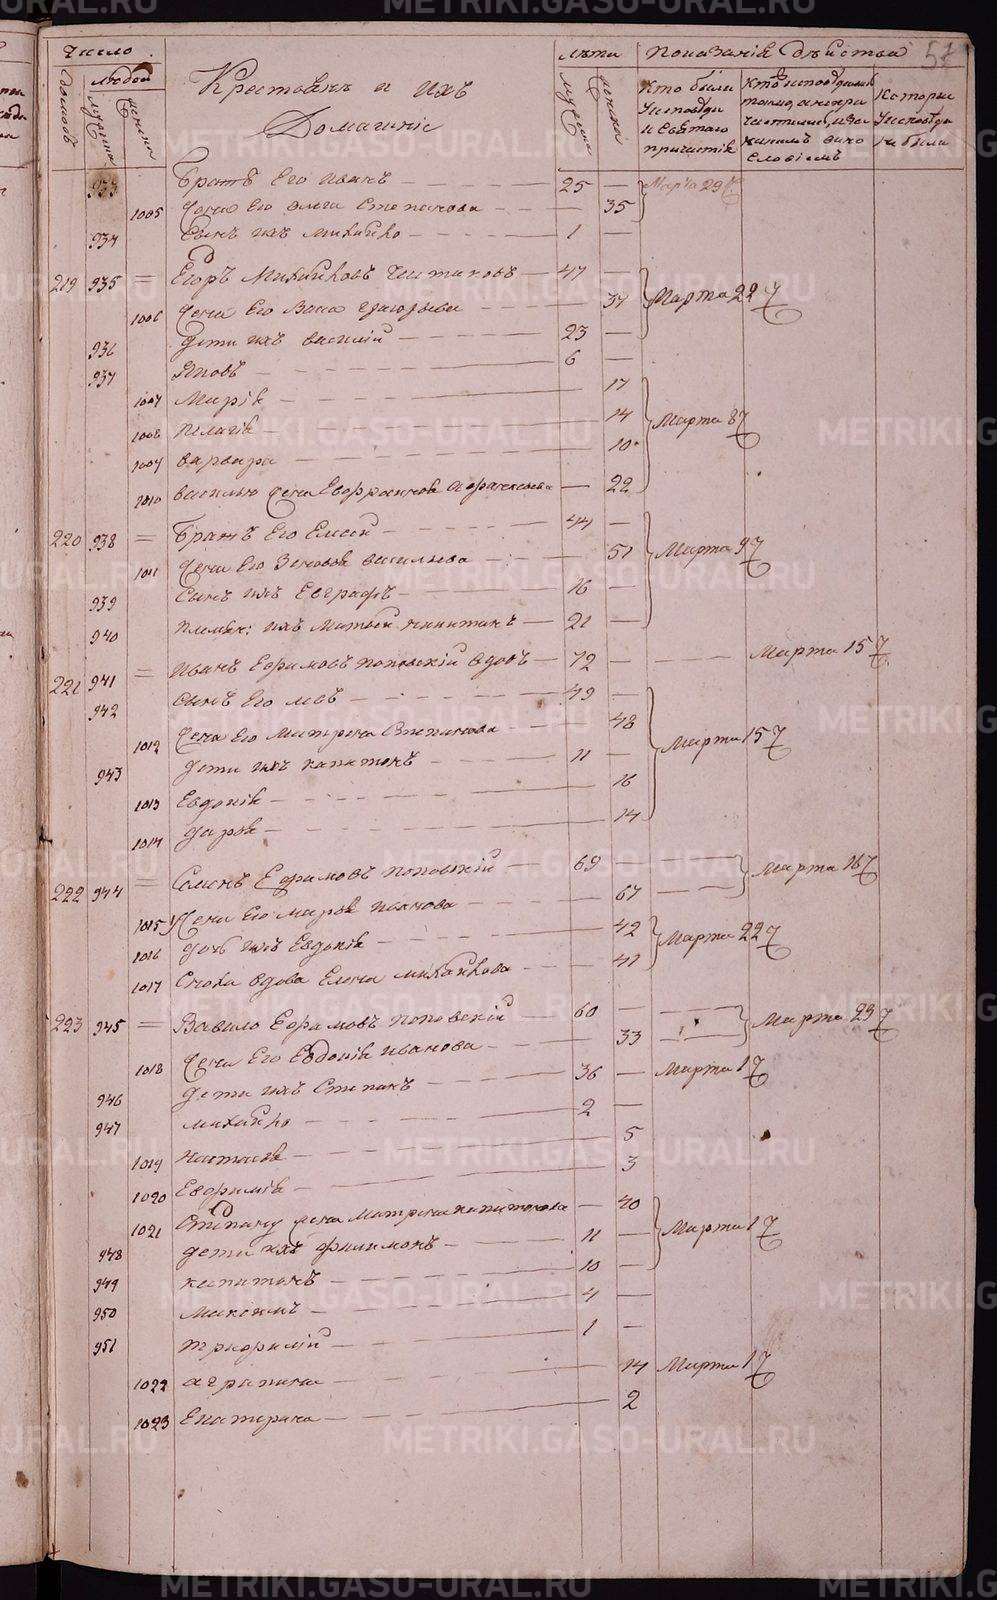 Число
людей
домовъ
мужска
женска
Крестьянъ и ихъ
Домашніе
лѣта
мужска
женска
Показаніе дѣйства
Кто были
Исповѣди
и Святаго
причастія
Кто исповѣдыв
Которы
Исповѣди
не были
57
933 Братъ Его Иванъ 25 Марта 29
1005 Жена Его Ольга Степанова 35
934 Сынъ ихъ Михайло 1
219 935 Егоръ Михайловъ Чистяковъ 47 Марта 22
1006 Жена Его Григорьева 37
936 Дети ихъ василій 23
937 Яковъ 6
1007 Марія 17
1008 Пелагія 14 Марта 8
1009 варвара 10
1010 василью жена Евфросинія 22
220 938 Братъ Его Елисей 44
1011 Жена Его Зеновья васильева 51 Марта 9
939 Сынъ ихъ Евграфъ 16
940 племян: ихъ Матвей 21
221 941 Иванъ Ефимовъ поповскій вдовъ 72 Марта 15
942 сынъ Его левъ 49
1012 Жена Его Матрена Степанова 48 Марта 15
943 дети ихъ капитонъ 11
1013 Евдокія 16
1014 дарья 14
222 944 Ефимовъ поповскій 69 Марта 16
1015 Жена Его марья Иванова 67
1016 дочь ихъ Евдокія 42 Марта 22
1017 Сноха вдова Елена михайлова 41
223 945 Вавило Ефимовъ поповскій 60 Марта 23
1018 Жена Его Евдокія Иванова 33
946 дети ихъ Степанъ 36 Марта 1
947 михайло 2
1019 настасья 5
1020 Евфимія 3
1021 Степану жена Матрена капитонова 40
948 дети ихъ филимонъ 11 Марта 1
949 капитонъ 10
950 Максимъ 4
951 трифилій 1
1022 аграпина 14 Марта 1
1023 Екатерина 2
METRIKI.GASO-URAL.RU